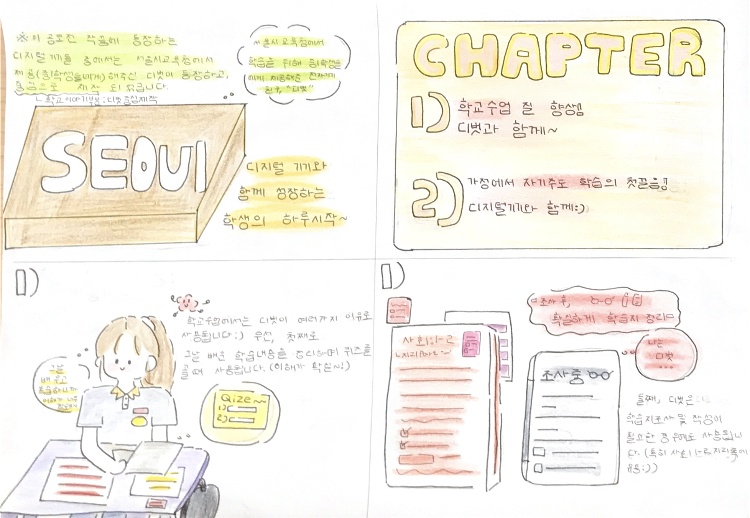 ※이 공모전 작품에 등장하는
디지털기기들 중에서는 서울시교육청에서
제공(중1학생들에게)해주신 디벗이 등장하고,
중심으로 제작 되었습니다.
서울시교육청에서
학습을 위해 중1학생들
에게 제공해준 전자기기
친구, "디벗"
SEOUL
디지털 기기와
함께 성장하는
학생의 하루시작~
CHAPTER
1) 학교수업 질 향상!
디벗과 함께~
2) 가정에서 자기주도 학습의 첫걸음!!
디지털기기와 함께:)
1)
학교수업에서는 디벗이 여러가지 이유로
사용됩니다:) 우선, 첫째로
그날 배운 학습내용을 정리하며 퀴즈를
풀 때 사용됩니다. (이해가 확실~!)
그날
배우고
복습하니까
이해가 너무
Qize~~
1)
2)
1)
조사 후,
확실하게 학습지 정리
나는
디벗
...
사회(나)고
조사중
둘째, 디벗은
학습지조사 및 작성이
필요한 경우에도 사용됩니
다. (특히 사회
유용:))